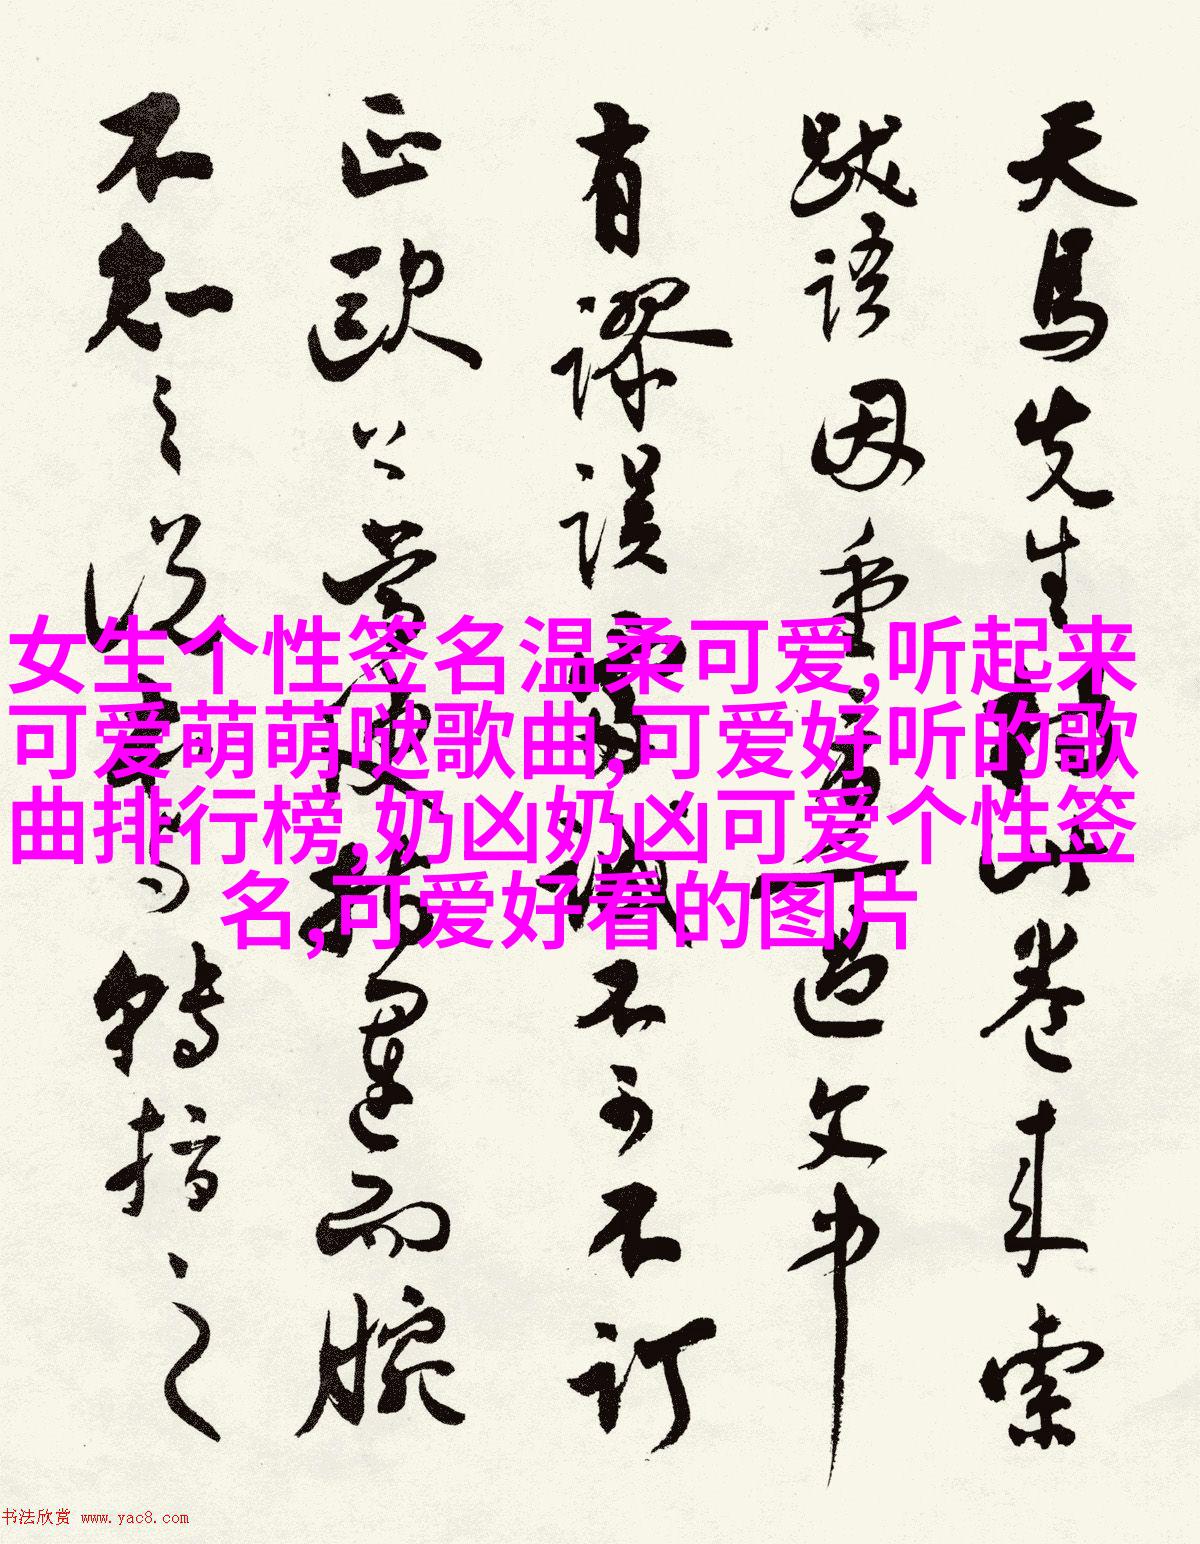 天馬先生山卷来索
跋語因重一過文中
有謬誤不可不訂
正歐公嘗使運而腕
不知之說轉指之
女生个性签名温柔可爱,听起来
可爱萌萌哒歌曲,可爱好听的歌
曲排行榜,奶凶奶凶可爱个性签
名,可爱好看的图片
书法欣赏 www.yac8.com